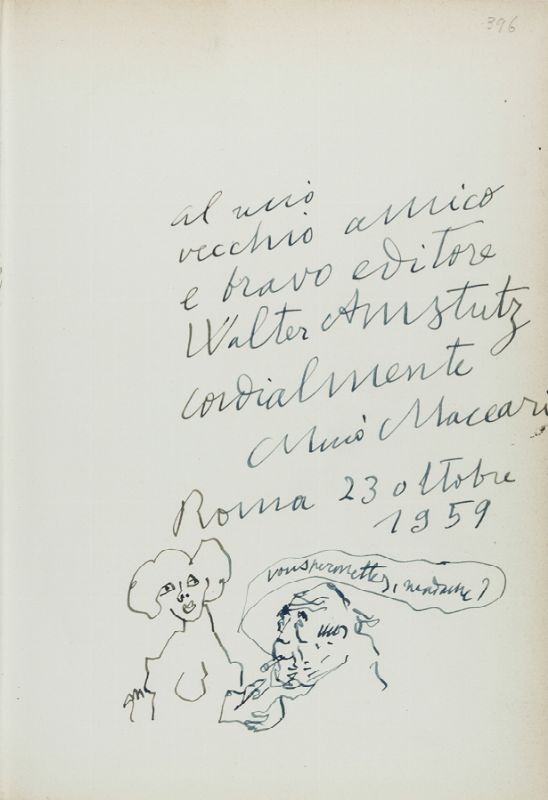 396
al mio
vecchio amico
e bravo editore
Walter Amstutz
cordialmente
Mino Maccari
Roma 23 ottobre
1959
vous permettez,